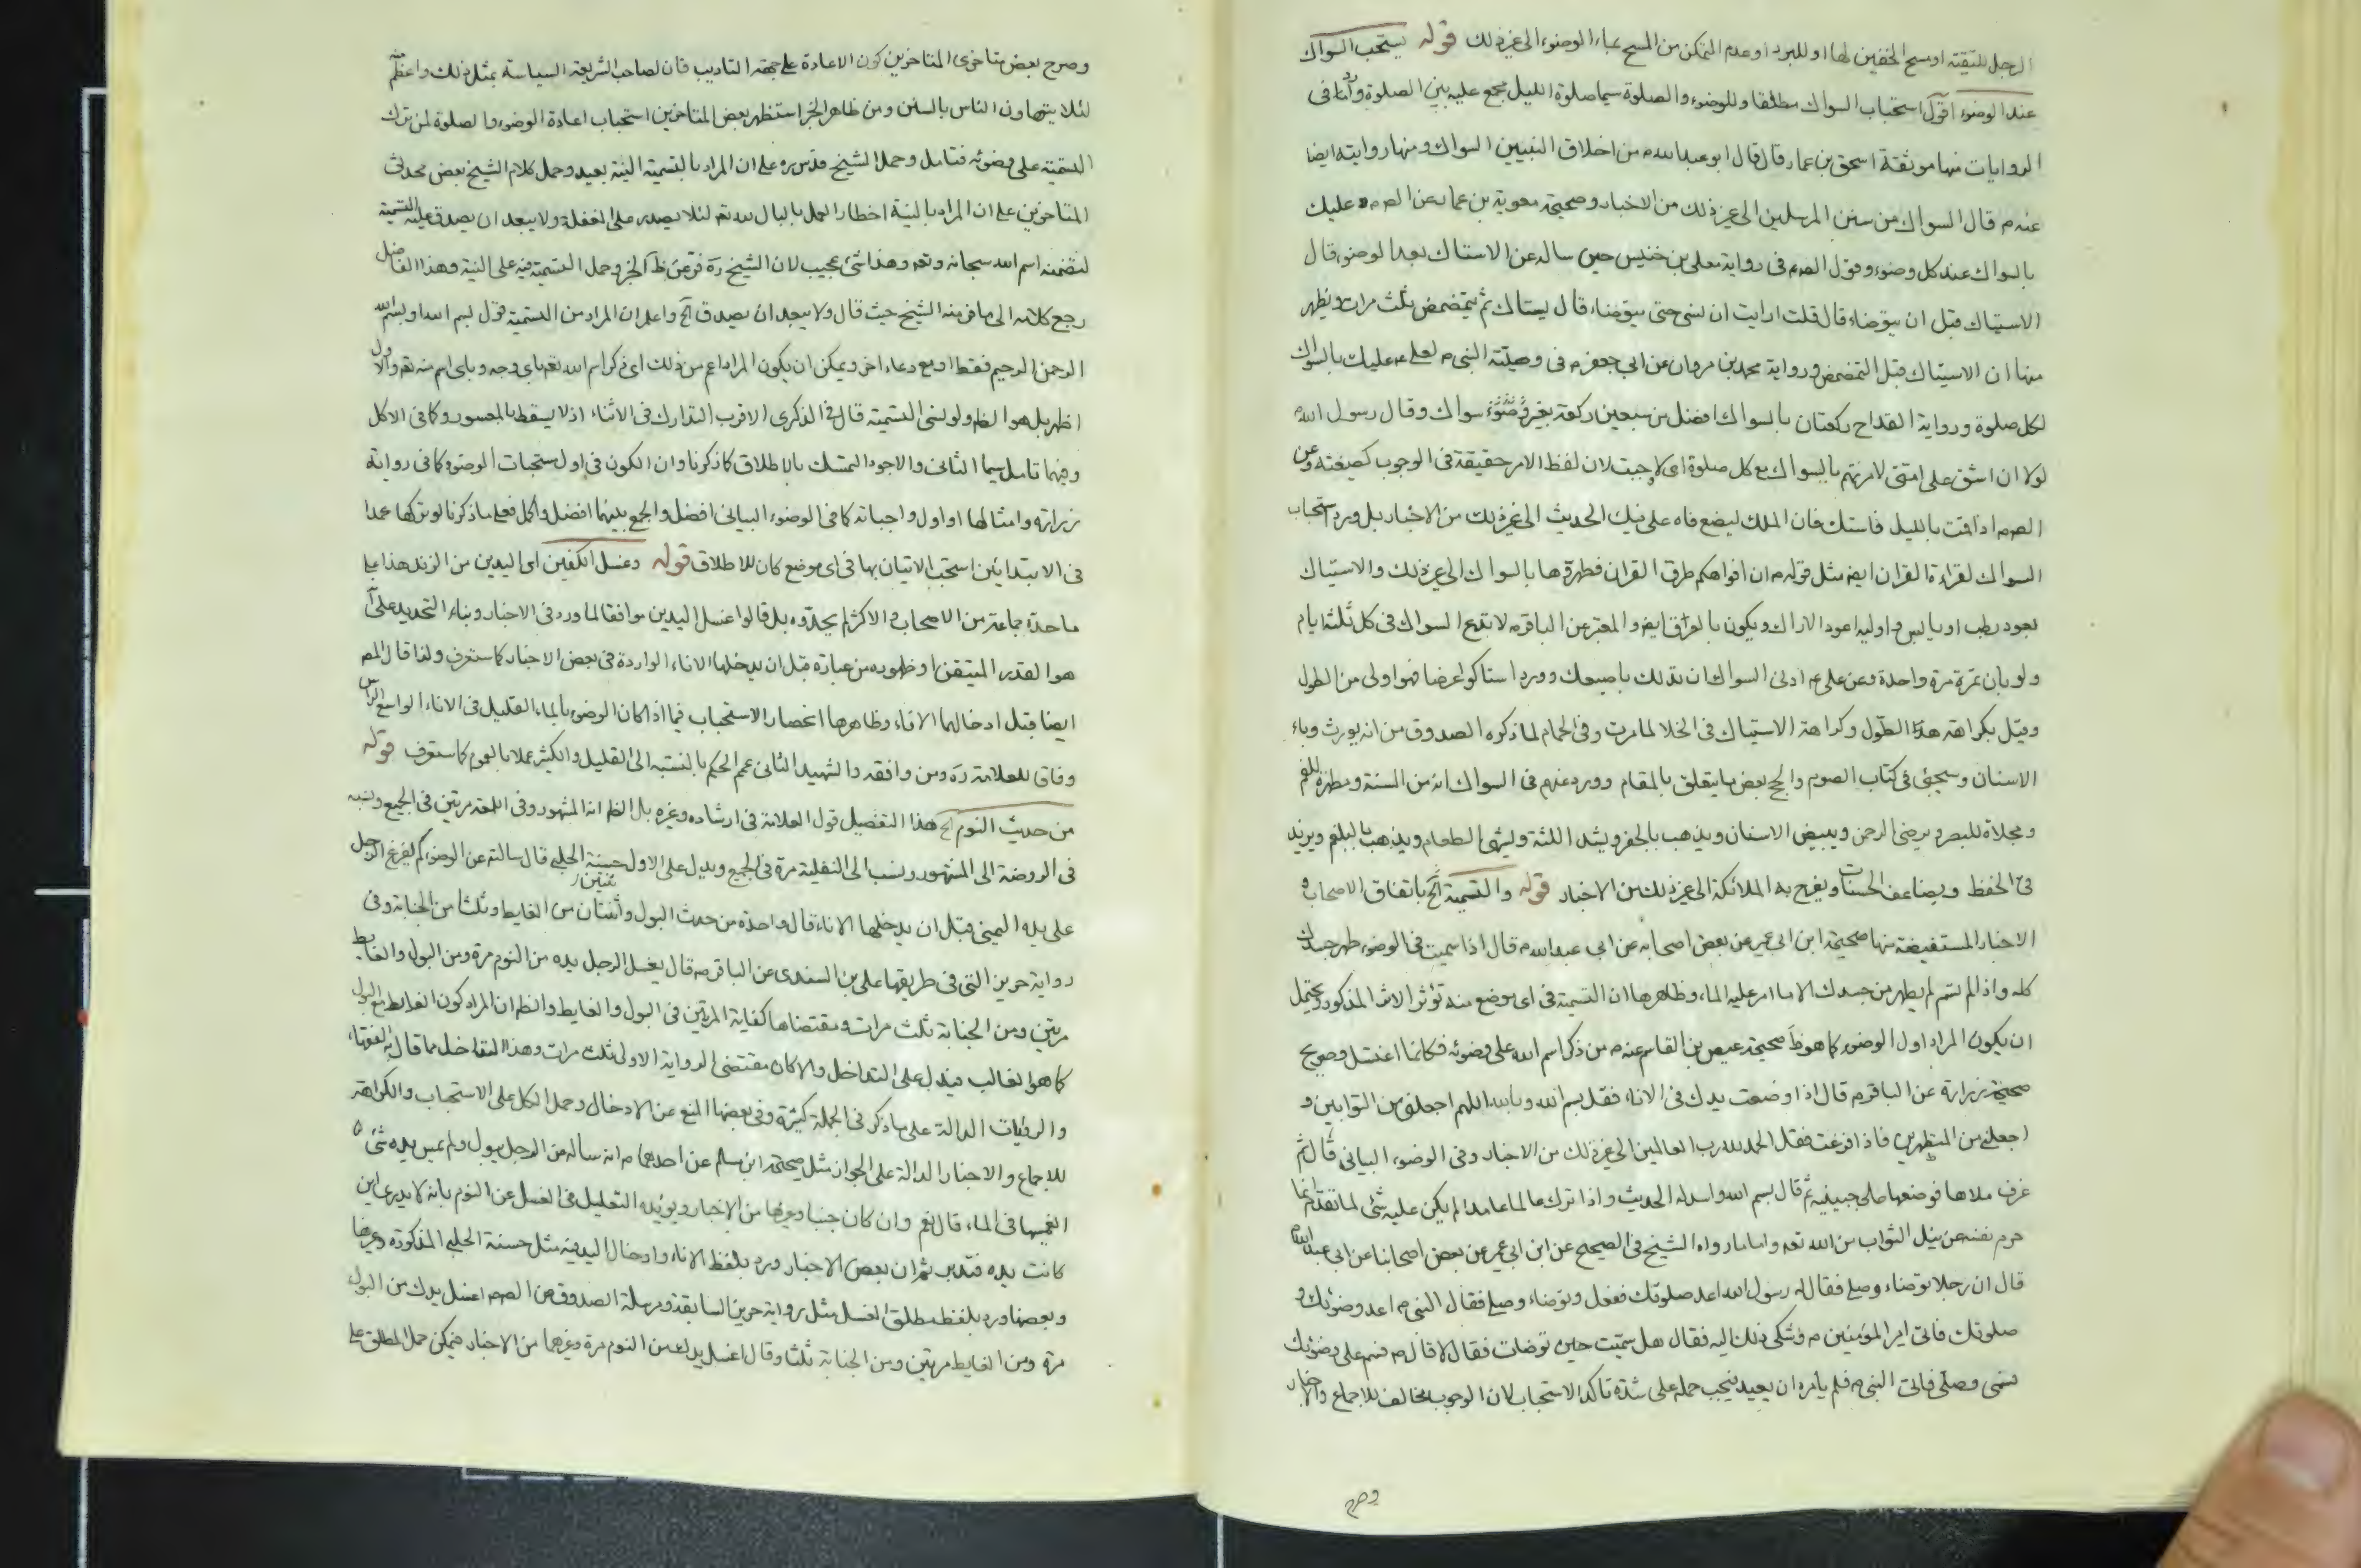 الرجل للتقية او مسح الخفين لها او للبرد او عدم التمكن من المسح بماء الوضوء الى غير ذلك قوله يستحب السواك
عند الوضوء اقول استحباب السواك مطلقا وللوضوء والصلوة سيما صلوة الليل مجمع عليه بين الصلوة واما فى
الروايات منها موثقة اسحق بن عمار قال قال ابو عبد الله م من اخلاق النبيين السواك ومنها روايته ايضا
عنه م قال السواك من سنن المرسلين الى غير ذلك من الاخبار وصحيحة معوية بن عمار عن الص م عليك
بالسواك عند كل وضوء وقول الص م فى رواية معلى بن خنيس حين ساله عن الاستاك بعد الوضوء قال
الاستياك قبل ان يتوضاء قال قلت ارايت ان نسى حتى يتوضاء قال يستاك ثم يتمضمض ثلث مرات ويظهر
منها ان الاستياك قبل التمضمض ورواية محمد بن مروان عن ابى جعفر م فى وصيته النبى م لعلى م عليك بالسواك
لكل صلوة ورواية القداح ركعتان بالسواك افضل من سبعين ركعة بغير سواك وقال رسول الله م
لولا ان اشق على امتى لامرتهم بالسواك مع كل صلوة اى لاوجبت لان لفظ الامر حقيقة فى الوجوب كصيغته وعن
الص م اذا قمت بالليل فاستك فان الملك يضع فاه على فيك الحديث الى غير ذلك من الاخبار بل ورد استحباب
السواك لقراءة القران ايض مثل قوله م ان افواهكم طرق القران فطهروها بالسواك الى غير ذلك والاستياك
بعود رطب او يابس واوليه اعود الاراك ويكون بالعرض ايض والمعتبر عن الباقر م لا تدع السواك فى كل ثلثة ايام
ولو بان تمره مرة واحدة وعن على م ادنى السواك ان تدلك باصبعك وورد استاكوا عرضا فهو اولى من الطول
وقيل بكراهة هذا الطول وكراهة الاستياك فى الخلا لما مرت وفى الحمام لما ذكره الصدوق من انه يورث وباء
الاسنان وسيجئ فى كتاب الصوم والحج بعض ما يتعلق بالمقام وورد عنهم فى السواك انه من السنة ومطهرة للفم
ومجلاة للبصر ويرضى الرحمن ويبيض الاسنان ويذهب بالحفر ويشد اللثة ويشهى الطعام ويذهب بالبلغم ويزيد
فى الحفظ ويضاعف الحسنات ويفرح به الملائكة الى غير ذلك من الاخبار قوله والتسمية الخ باتفاق الاصحاب و
الاخبار المستفيضة منها صحيحة ابن ابى عمير عن بعض اصحابه عن ابى عبد الله م قال اذا سميت فى الوضوء طهر جسدك
كله واذا لم تسم لم يطهر من جسدك الا ما امر عليه الماء وظاهرها ان التسمية فى اى موضع منه تؤثر الاثر المذكور ويحتمل
ان يكون المراد اول الوضوء كما هو ظ صحيحة عيص بن القاسم عنه م من ذكر اسم الله على وضوئه فكانما اغتسل وصريح
صحيحة زرارة عن الباقر م قال اذا وضعت يدك فى الاناء فقل بسم الله وبالله اللهم اجعلنى من التوابين و
اجعلنى من المتطهرين فاذا فرغت فقل الحمد لله رب العالمين الى غير ذلك من الاخبار وفى الوضوء البيانى قال ثم
غرف ملاها فوضعها على جبينيه ثم قال بسم الله واسدله الحديث واذا ترك عالما عامدا لم يكن عليه شئ لما تقدم انما
حرم نفسه من نيل الثواب من الله تعه واما ما رواه الشيخ فى الصحيح عن ابن ابى عمير عن بعض اصحابنا عن ابى عبد الله م
قال ان رجلا توضاء وصلى فقال له رسول الله اعد صلوتك ففعل وتوضاء وصلى فقال النبى م اعد وضوئك و
صلوتك فاتى امير المؤمنين م فشكى ذلك اليه فقال هل سميت حين توضات فقال لا قال م فسم على وضوئك
فسمى وصلى فاتى النبى م فلم يامره ان يعيد فيجب حمله على شدة تاكد الاستحباب لان الوجوب مخالف للاجماع والاخبار
وصرح
وصرح بعض متاخرى المتاخرين كون الاعادة على جهة التاديب فان لصاحب الشريعة السياسة بمثل ذلك واعظم منه
لئلا يتهاون الناس بالسنن ومن ظاهر الخبر استظهر بعض المتاخرين استحباب اعادة الوضوء والصلوة لمن ترك
التسمية على وضوئه فتامل وحمل الشيخ قدس سره على ان المراد بالتسمية النية بعيد وحمل كلام الشيخ بعض محدثى
المتاخرين على ان المراد بالنية اخطار العمل بالبال لله تعه لئلا يصدر على الغفلة ولا يبعد ان يصدق عليه التسمية
لتضمنه اسم الله سبحانه وتعه وهذا شئ عجيب لان الشيخ ره فر عن ظ الخبر وحمل التسمية فيه على النية وهذا الفاضل
رجع كلامه الى ما فر منه الشيخ حيث قال ولا يبعد ان يصدق الخ واعلم ان المراد من التسمية قول بسم الله او بسم الله
الرحمن الرحيم فقط او مع دعاء اخر ويمكن ان يكون المراد اعم من ذلك اى ذكر اسم الله تعه باى وجه وباى اسم منه تعه والاول
اظهر بل هو الظ ولو نسى التسمية قال فى الذكرى الاقرب التدارك فى الاثناء اذ لا يسقط بالمعسور وكما فى الاكل
وفيهما تامل سيما الثانى والاجود التمسك بالاطلاق كما ذكرنا وان الكون فى اول مستحبات الوضوء كما فى رواية
زرارة وامثالها او اول واجباته كما فى الوضوء البيانى افضل والجمع بينهما افضل واكمل فعلى ما ذكرنا لو تركها عمدا
فى الابتدائين استحب الاتيان بها فى اى موضع كان للاطلاق قوله وغسل الكفين اى اليدين من الزند هذا على
ما حده جماعة من الاصحاب والاكثر لم يحدوه بل قالوا غسل اليدين موافقا لما ورد فى الاخبار وبناء التحديد على انه
هو القدر المتيقن او ظهوره من عبارة قبل ان يدخلها الاناء الواردة فى بعض الاخبار كما ستعرف ولذا قال المص
ايضا قبل ادخالهما الاناء وظاهرها انحصار الاستحباب فيما اذا كان الوضوء بالماء القليل فى الاناء الواسع الراس
وفاقا للعلامة ره ومن وافقه والشهيد الثانى عمم الحكم بالنسبة الى القليل والكثير عملا بالعموم كما ستعرف قوله
من حديث النوم الخ هذا التفصيل قول العلامة فى ارشاده وغيره بل الظ انه المشهور وفى اللمعة مرتين فى الجميع ونسبه
فى الروضة الى المشهور ونسب الى النفلية مرة فى الجميع ويدل على الاول حسنة الحلبى قال سالته عن الوضوء كم يفرغ الرجل
على يده اليمنى قبل ان يدخلها الاناء قال واحدة من حدث البول واثنتان من الغايط وثلثا من الجنابة وفى
رواية حريز التى فى طريقها على بن السندى عن الباقر م قال يغسل الرجل يده من النوم مرة ومن البول والغايط
مرتين ومن الجنابة ثلث مرات ومقتضاها كفاية المرتين فى البول والغايط والظ ان المراد كون الغايط مع البول
كما هو الغالب فيدل على التداخل والا كان مقتضى الرواية الاولى ثلث مرات وهذا التداخل مما قال به الفقهاء
والروايات الدالة على ما ذكر فى الجملة كثيرة وفى بعضها المنع عن الادخال وحمل الكل على الاستحباب والكراهة
للاجماع والاخبار الدالة على الجواز مثل صحيحة ابن مسلم عن احدهما م انه ساله عن الرجل يبول ولم يمس يده شئ
ايغمسها فى الماء قال نعم وان كان جنبا وغيرها من الاخبار ويؤيده التعليل فى الغسل عن النوم بانه لا يدرى اين
كانت يده فتدبر ثم ان بعض الاخبار ورد بلفظ الاناء وادخال اليد فيه مثل حسنة الحلبى المذكورة وغيرها
وبعضها ورد بلفظ مطلق الغسل مثل رواية حريز السابقة ومرسلة الصدوق عن الص م اغسل يدك من البول
مرة ومن الغايط مرتين ومن الجنابة ثلثا وقال اغسل يدك من النوم مرة وغيرهما من الاخبار فيمكن حمل المطلق على